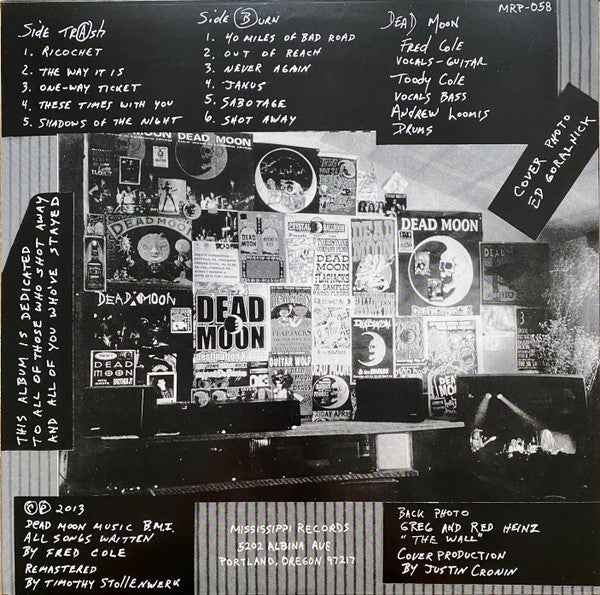 Side TRAsh
1. Ricochet
2. The Way It Is
3. One-Way Ticket
4. These Times With You
5. Shadows of the Night
Side Burn
1. 40 Miles of Bad Road
2. Out of Reach
3. Never Again
4. Janus
5. Sabotage
6. Shot Away
Dead Moon
Fred Cole
Vocals-Guitar
Toody Cole
Vocals Bass
Andrew Loomis
Drums
MRP-058
Cover Photo
Ed Goralnick
This album is dedicated
to all of those who shot away
and all of you who've stayed
DEAD MOON
DEAD MOON
DEAD MOON
DEAD MOON
DEAD MOON
DEAD
MOON
DEAD
MOON
FLAPJACKS
JR. SAMPLES
DEAD
MOON
DEAD MOON
FLAPJACKS
GUITAR WOLF
DEAD
MOON
©℗ 2013
Dead Moon Music B.M.I.
All Songs Written
By Fred Cole
Remastered
By Timothy Stollenwerk
Mississippi Records
5202 Albina Ave
Portland, Oregon 97217
Back Photo
Greg and Red Heinz
"The Wall"
Cover Production
By Justin Cronin